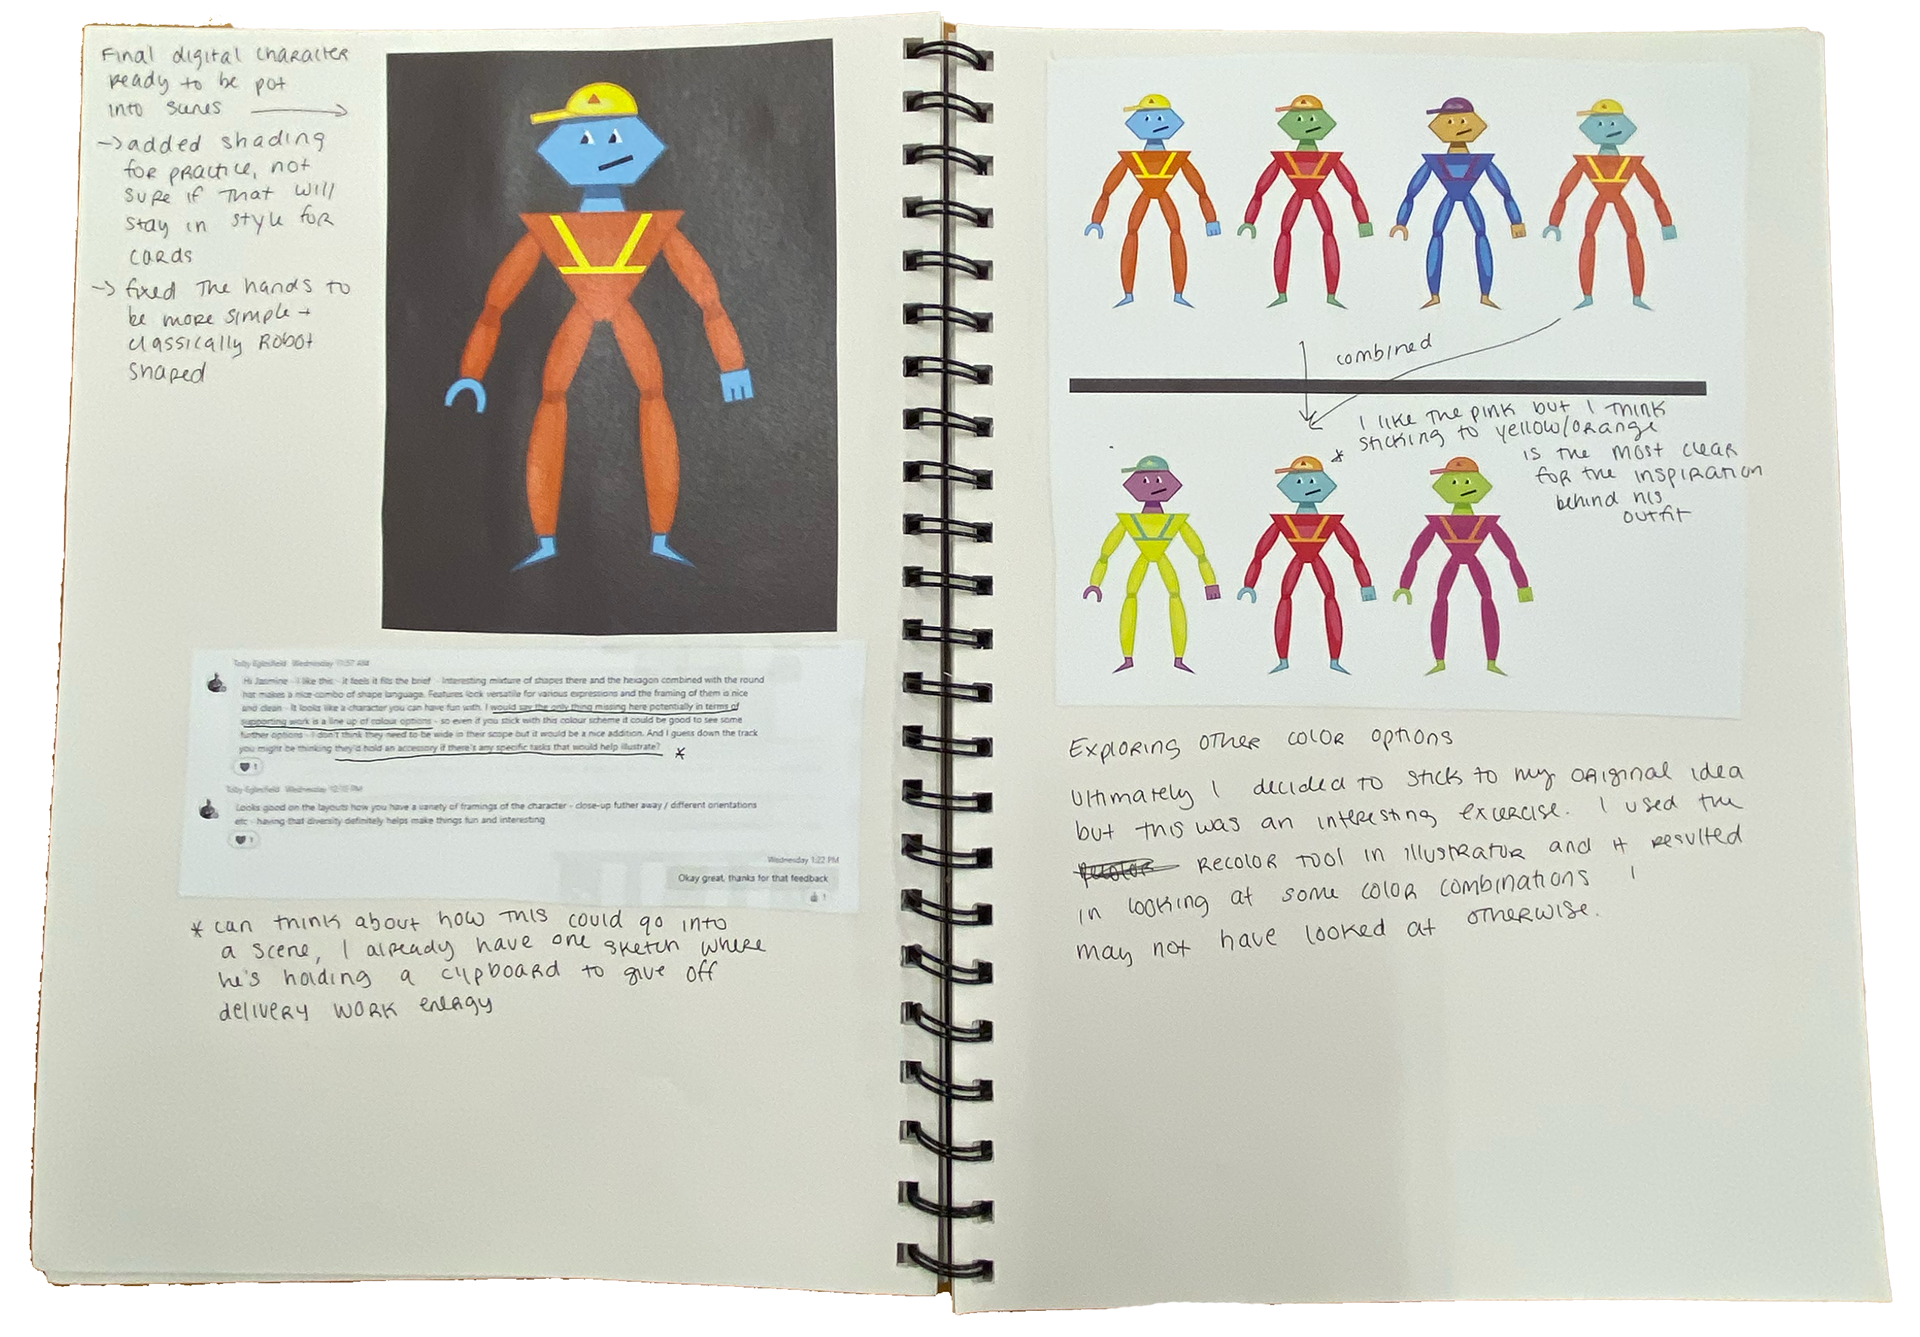 Final digital character
ready to be pot
into scenes
→ added shading
for practice, not
sure if that will
stay in style for
cards
→ fixed the hands to
be more simple +
classically robot
shaped
Toby Eglesfield Wednesday 11:57 AM
Hi Jasmine - I like this - it feels it fits the brief - Interesting mixture of shapes there and the hexagon combined with the round
hat makes a nice combo of shape language. Features look versatile for various expressions and the framing of them is nice
and clean - It looks like a character you can have fun with. I would say the only thing missing here potentially in terms of
supporting work is a line up of colour options - so even if you stick with this colour scheme it could be good to see some
further options - I don't think they need to be wide in their scope but it would be a nice addition. And I guess down the track
you might be thinking they'd hold an accessory if there's any specific tasks that would help illustrate? *
1
Toby Eglesfield Wednesday 12:10 PM
Looks good on the layouts how you have a variety of framings of the character - close-up futher away / different orientations
etc - having that diversity definitely helps make things fun and interesting
1
Wednesday 1:22 PM
Okay great, thanks for that feedback
1
* can think about how this could go into
a scene, I already have one sketch where
he's holding a clipboard to give off
delivery work energy
combined
I like the pink but I think
* sticking to yellow/orange
is the most clear
for the inspiration
behind his
outfit
Exploring other color options
Ultimately I decided to stick to my original idea
but this was an interesting excercise. I used the
recolor tool in illustrator and it resulted
in looking at some color combinations I
may not have looked at otherwise.